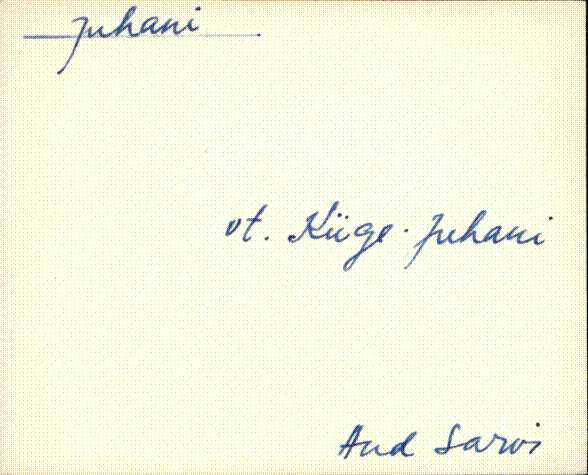 Juhani
vt. Kiige-Juhani
Aud Sarvi